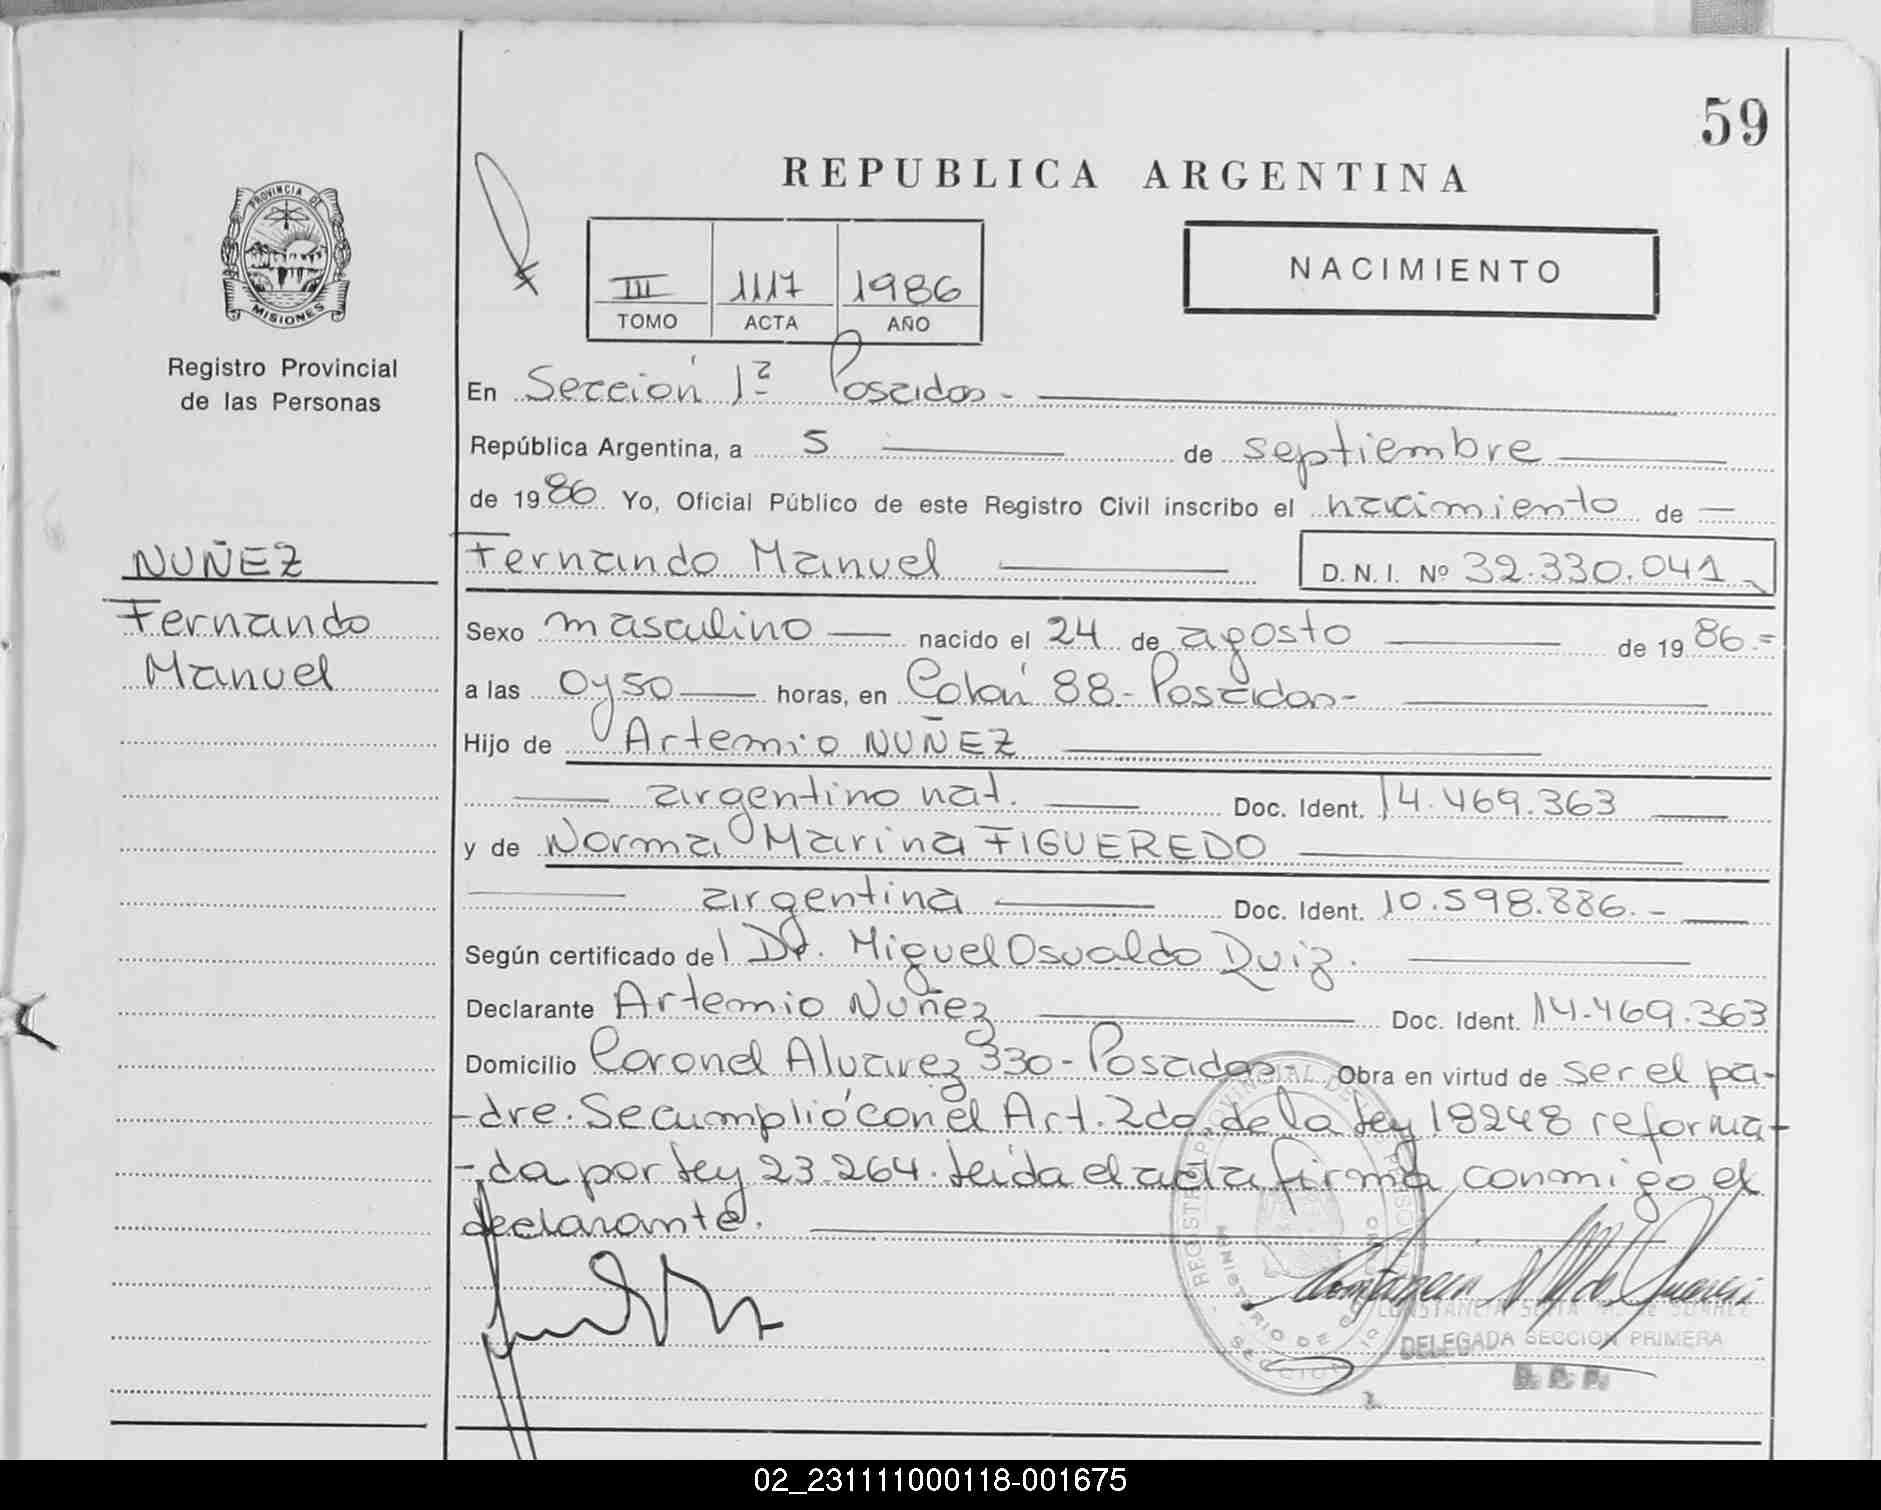 59
REPUBLICA ARGENTINA
PROVINCIA DE
MISIONES
Registro Provincial
de las Personas
III 1117 1986
TOMO ACTA AÑO
NACIMIENTO
En Sección 1ª Posadas -
República Argentina, a 5 de septiembre
de 1986 Yo, Oficial Público de este Registro Civil inscribo el nacimiento de
NUÑEZ
Fernando
Manuel
Fernando Manuel D.N.I. Nº 32.330.041
Sexo masculino nacido el 24 de agosto de 1986.=
a las 0y50 horas, en Colón 88.- Posadas-
Hijo de Artemio NUÑEZ
argentino nat. Doc. Ident. 14.469.363
y de Norma Marina FIGUEREDO
argentina Doc. Ident. 10.598.886.-
Según certificado del Dr. Miguel Osvaldo Ruiz.
Declarante Artemio Nuñez Doc. Ident. 14.469.363
Domicilio Coronel Alvarez 330- Posadas- Obra en virtud de ser el pa-
-dre. Se cumplió con el Art. 2do. de la Ley 18248 reforma-
-da por Ley 23.264. Leída el acta firma conmigo el
declarante.
DELEGADA SECCION PRIMERA
02_231111000118-001675